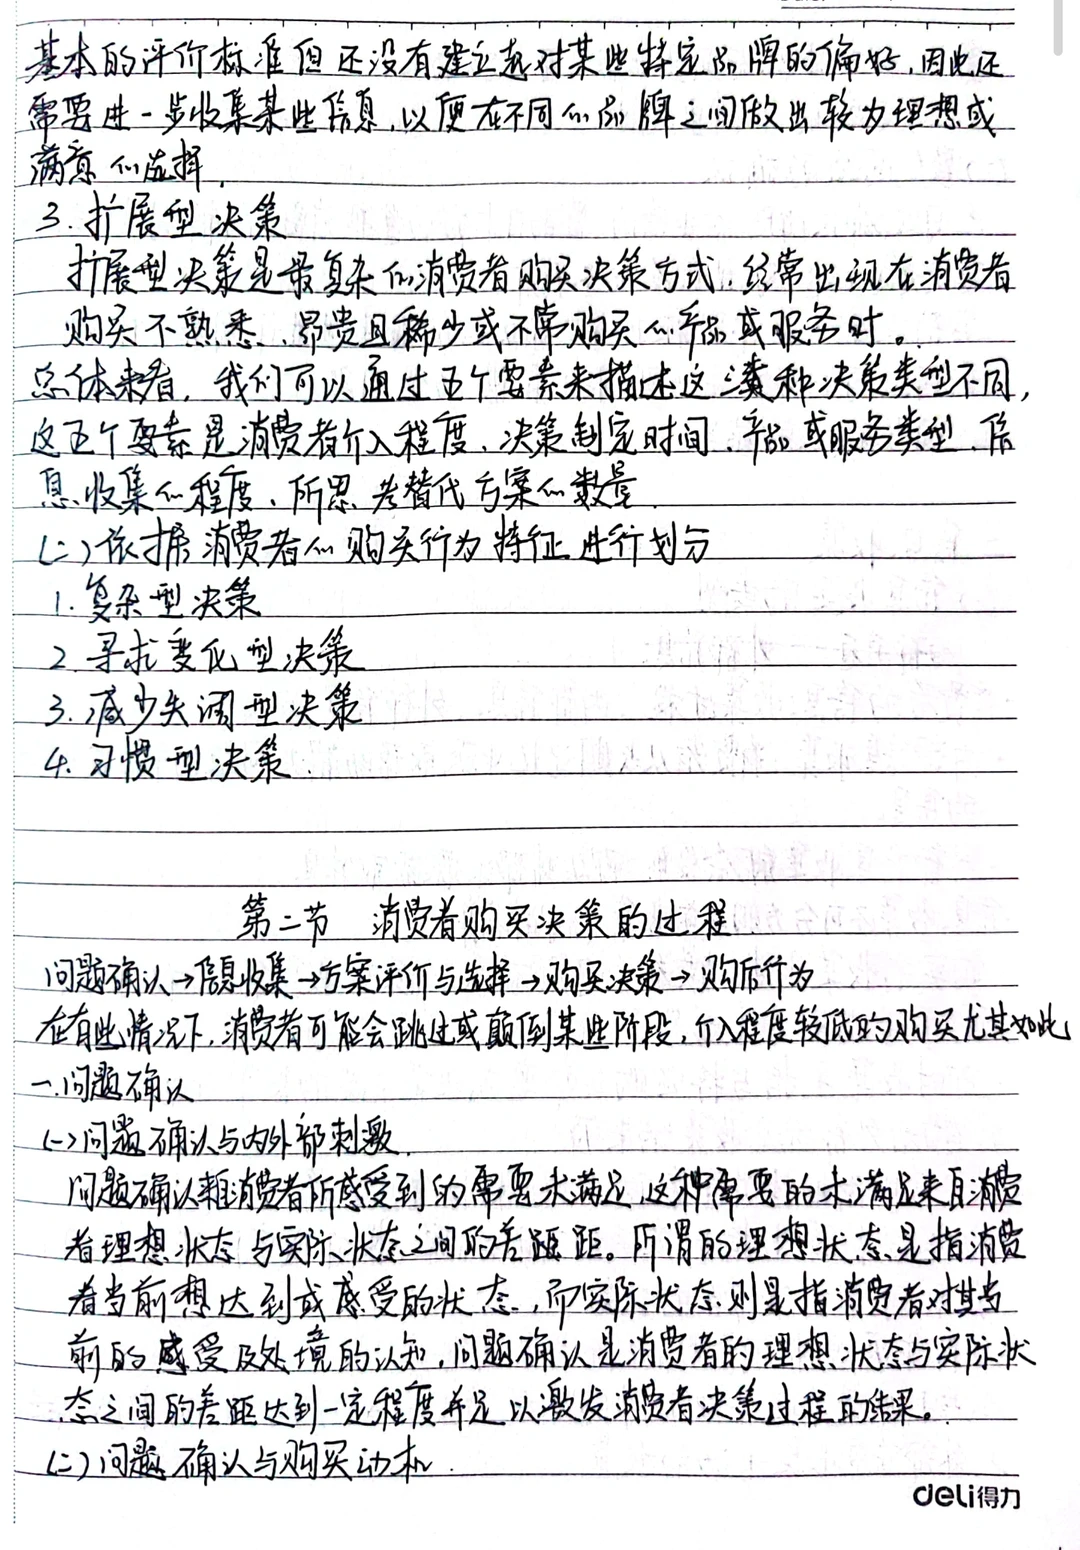 基本的评价标准但还没有建立起对某些特定品牌的偏好,因此还
需要进一步收集某些信息,以便在不同的品牌之间做出较为理想或
满意的选择.
3.扩展型决策
扩展型决策是最复杂的消费者购买决策方式.经常出现在消费者
购买不熟悉、昂贵且稀少或不常购买的产品或服务时。
总体来看,我们可以通过五个要素来描述这三类种决策类型不同,
这五个要素是消费者介入程度、决策制定时间、产品或服务类型、信
息收集的程度、所思考替代方案的数量.
(二)依据消费者的购买行为特征进行划分
1.复杂型决策
2.寻求变化型决策
3.减少失调型决策
4.习惯型决策
第二节 消费者购买决策的过程
问题确认→信息收集→方案评价与选择→购买决策→购后行为
在有些情况下,消费者可能会跳过或颠倒某些阶段,介入程度较低的购买尤其如此
一.问题确认
(一)问题确认与内外部刺激.
问题确认来自消费者所感受到的需要未满足,这种需要的未满足来自消费
者理想状态与实际状态之间的差距距。所谓的理想状态是指消费
者当前想达到或感受的状态,而实际状态则是指消费者对其当
前的感受及处境的认知,问题确认是消费者的理想状态与实际状
态之间的差距达到一定程度并足以激发消费者决策过程的结果。
(二)问题确认与购买动机.
deli得力